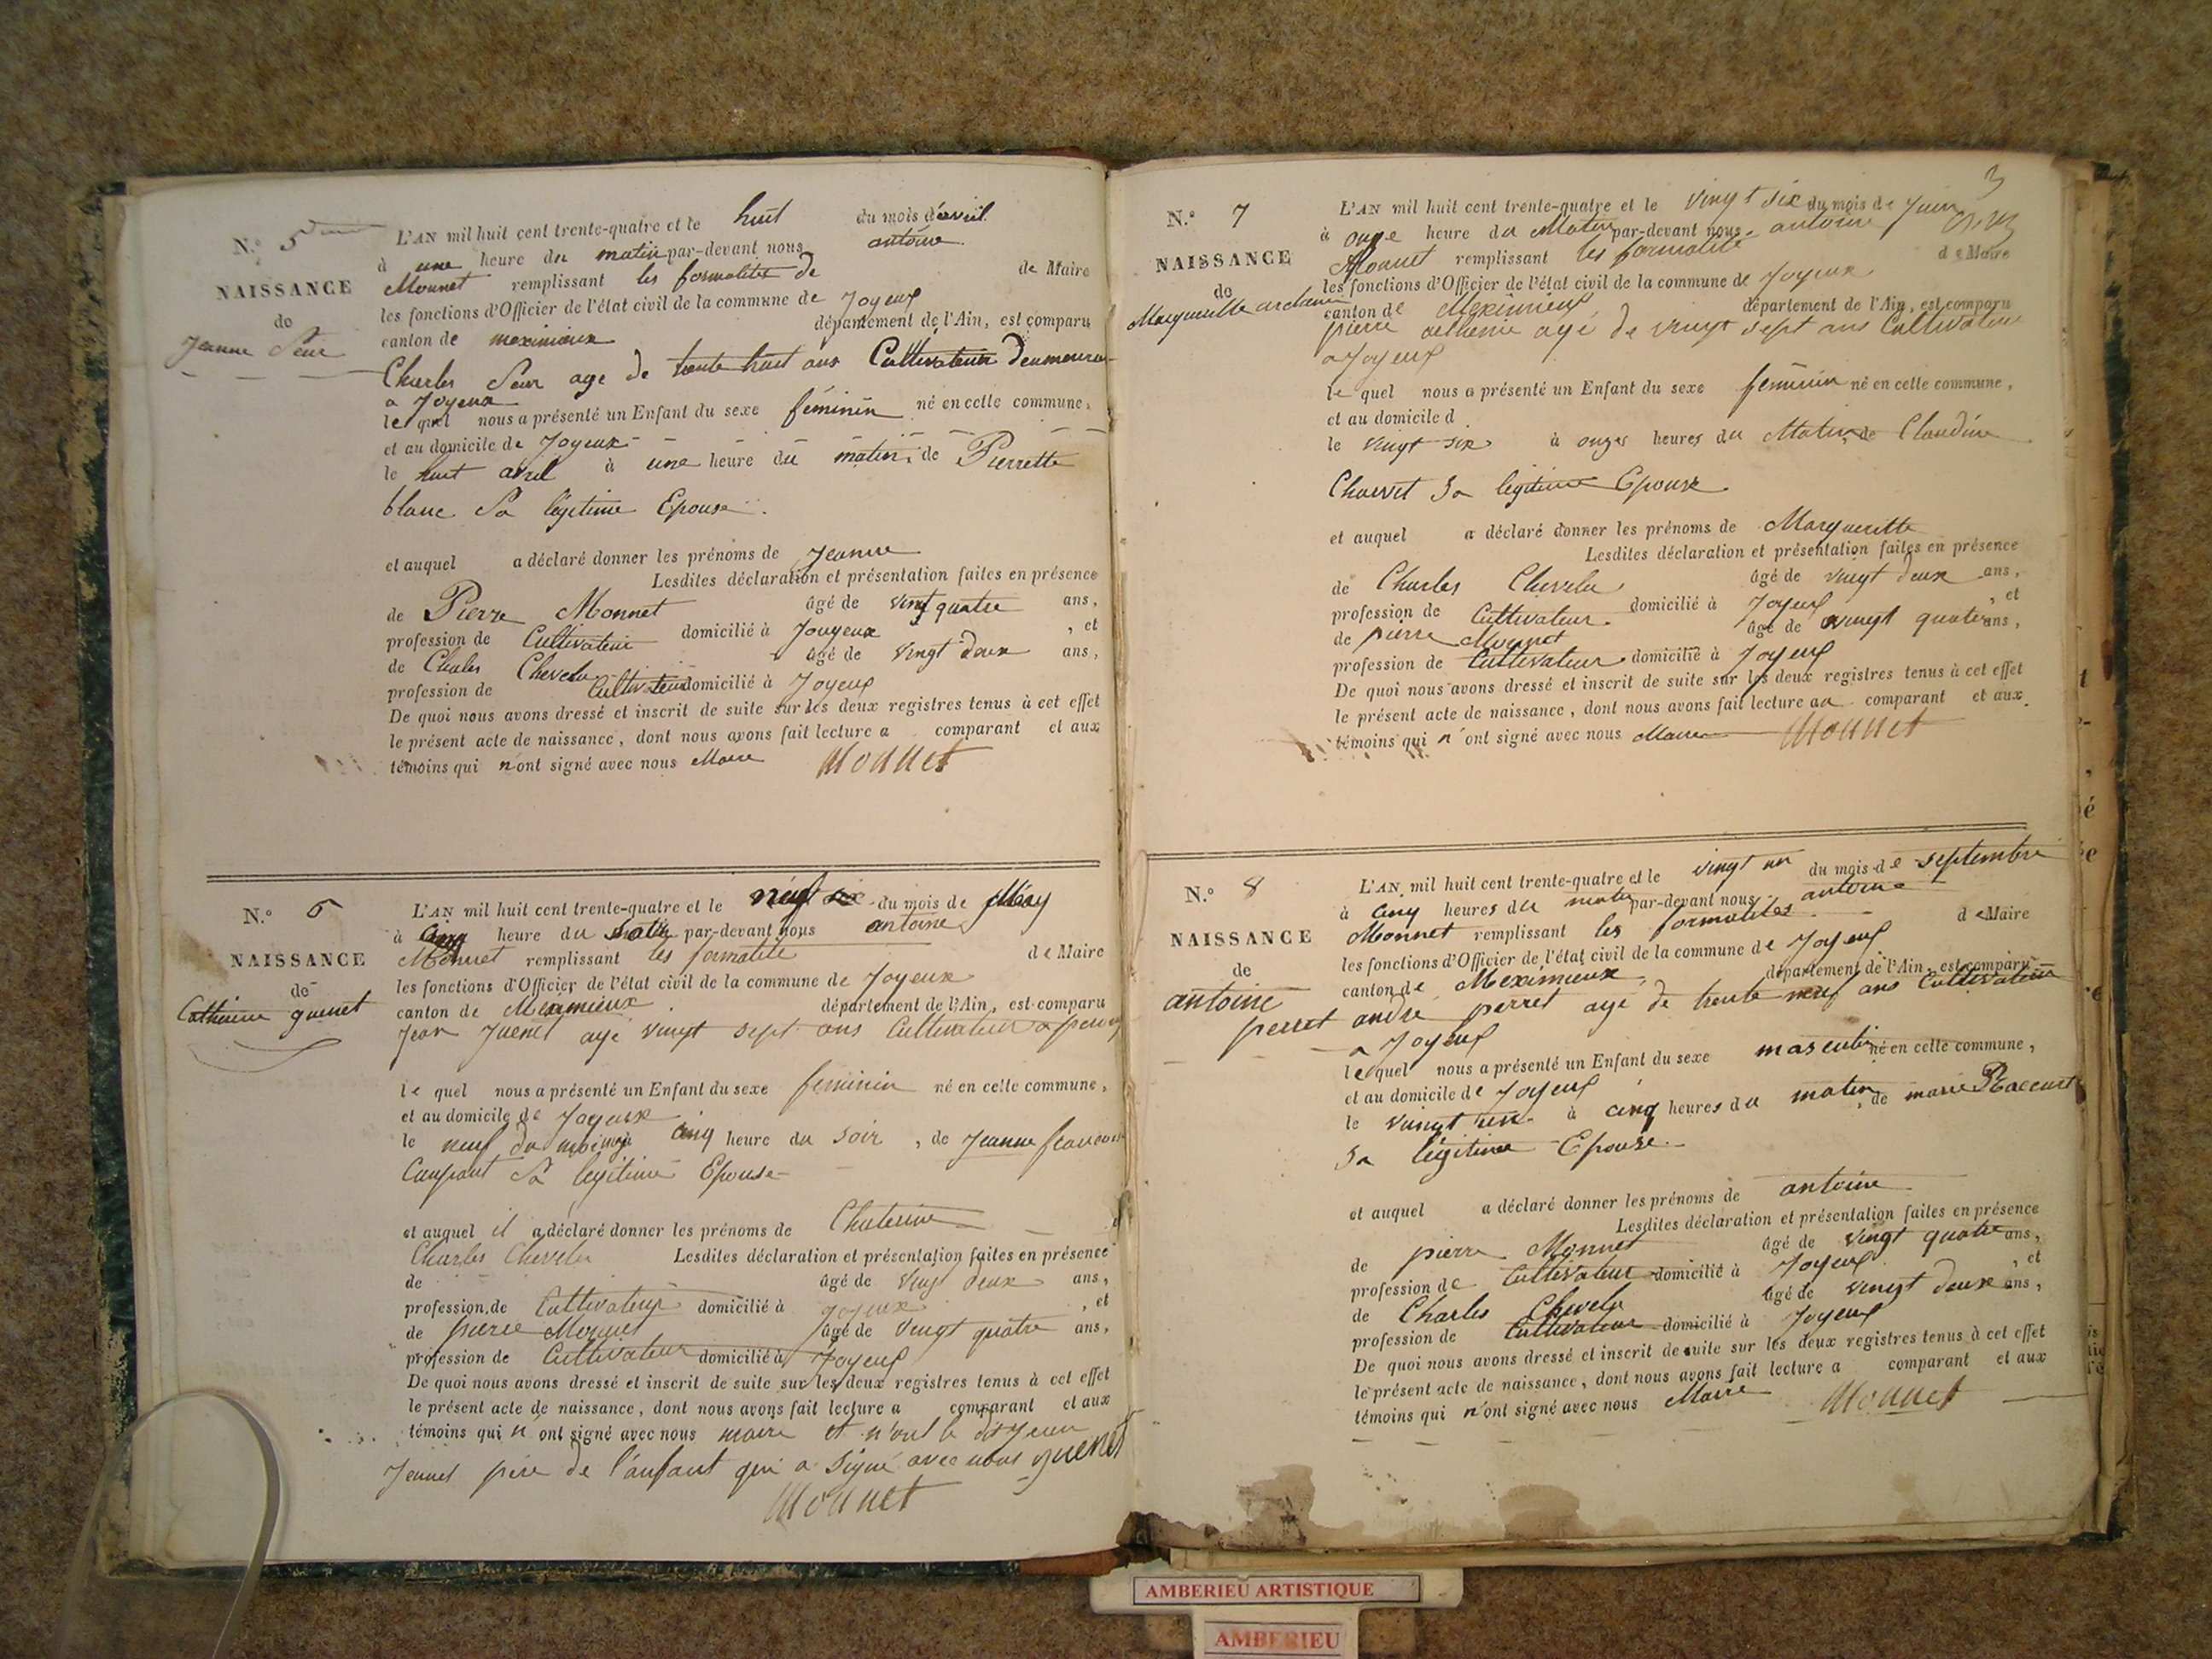 N.º 5
NAISSANCE
de
Jeanne
L'AN mil huit cent trente-quatre et le huit du mois d'avril
à une heure du matin par-devant nous antoine
Monnet remplissant les formalites de de Maire
les fonctions d'Officier de l'état civil de la commune de Joyeux
canton de meximieux département de l'Ain, est comparu
Charles age de trente huit ans Cultivateur
a Joyeux
le quel nous a présenté un Enfant du sexe féminin né en cette commune,
et au domicile de Joyeux
le huit avril à une heure du matin, de Pierrette
blanc Sa légitime Epouse
et auquel a déclaré donner les prénoms de Jeanne
Lesdites déclaration et présentation faites en présence
de Pierre Monnet âgé de vingt quatre ans,
profession de Cultivateur domicilié à Jouyeux , et
de Charles Chevelu âgé de vingt deux ans,
profession de Cultivateur domicilié à Joyeux
De quoi nous avons dressé et inscrit de suite sur les deux registres tenus à cet effet
le présent acte de naissance, dont nous avons fait lecture a comparant et aux
témoins qui n'ont signé avec nous Maire Monnet
N.º 6
NAISSANCE
de
Catherine guenet
L'AN mil huit cent trente-quatre et le neuf du mois de May
à cinq heure du par-devant nous antoine
Monnet remplissant les formalité de Maire
les fonctions d'Officier de l'état civil de la commune de Joyeux
canton de département de l'Ain, est comparu
Jean Juenet agé vingt sept ans Cultivateur a
le quel nous a présenté un Enfant du sexe feminin né en cette commune,
et au domicile de Joyeux
le neuf du cinq heure du soir, de Jeanne
Sa legitime Epouse
et auquel il a déclaré donner les prénoms de Chaterine
Charles Chevelu Lesdites déclaration et présentation faites en présence
de âgé de vingt deux ans,
profession de Cultivateur domicilié à Joyeux , et
de pierre Monnet âgé de vingt quatre ans,
profession de Cultivateur domicilié à Joyeux
De quoi nous avons dressé et inscrit de suite sur les deux registres tenus à cet effet
le présent acte de naissance, dont nous avons fait lecture a comparant et aux
témoins qui n'ont signé avec nous maire et
père de l'anfant qui a signé avec nous guenet
Monnet
3
N.º 7
NAISSANCE
de
Margueritte
L'AN mil huit cent trente-quatre et le vingt six du mois de Juin
à onze heure du Matin par-devant nous antoine
Monnet remplissant les formalité de Maire
les fonctions d'Officier de l'état civil de la commune de Joyeux
canton de Meximieux département de l'Ain, est comparu
pierre agé de vingt sept ans Cultivateur
a Joyeux
le quel nous a présenté un Enfant du sexe féminin né en cette commune,
et au domicile d
le vingt six à onzes heures du Matin, de Claudine
Sa légitime Epouse
et auquel a déclaré donner les prénoms de Margueritte
Lesdites déclaration et présentation faites en présence
de Charles Chevelu âgé de vingt deux ans,
profession de Cultivateur domicilié à Joyeux , et
de pierre Monnet âgé de vingt quatre ans,
profession de Cultivateur domicilié à Joyeux
De quoi nous avons dressé et inscrit de suite sur les deux registres tenus à cet effet
le présent acte de naissance, dont nous avons fait lecture au comparant et aux
témoins qui n'ont signé avec nous Maire Monnet
N.º 8
NAISSANCE
de
antoine
perret
L'AN mil huit cent trente-quatre et le vingt un du mois de septembre
à cinq heures du matin par-devant nous antoine
Monnet remplissant les formalites de Maire
les fonctions d'Officier de l'état civil de la commune de Joyeux
canton de Meximieux département de l'Ain, est comparu
andre perret agé de trente neuf ans Cultivateur
a Joyeux
le quel nous a présenté un Enfant du sexe masculin né en cette commune,
et au domicile de Joyeux
le vingt un à cinq heures du matin, de marie
Sa légitime Epouse
et auquel a déclaré donner les prénoms de antoine
Lesdites déclaration et présentation faites en présence
de pierre Monnet âgé de vingt quatre ans,
profession de Cultivateur domicilié à Joyeux , et
de Charles Chevelu âgé de vingt deux ans,
profession de Cultivateur domicilié à Joyeux
De quoi nous avons dressé et inscrit de suite sur les deux registres tenus à cet effet
le présent acte de naissance, dont nous avons fait lecture a comparant et aux
témoins qui n'ont signé avec nous Maire Monnet
AMBERIEU ARTISTIQUE
AMBERIEU